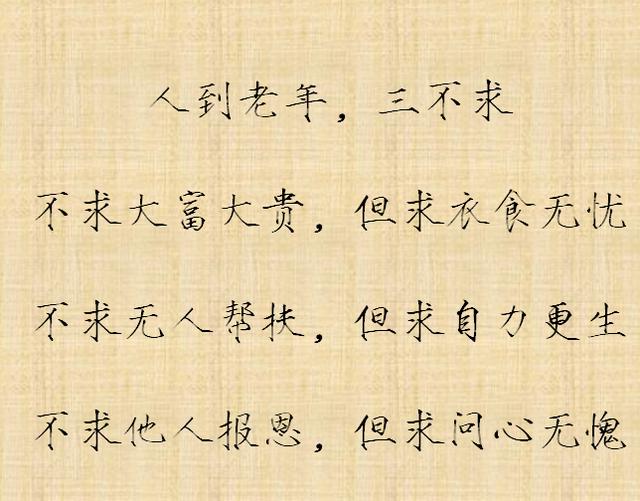 人到老年，三不求
不求大富大贵，但求衣食无忧
不求无人帮扶，但求自力更生
不求他人报恩，但求问心无愧